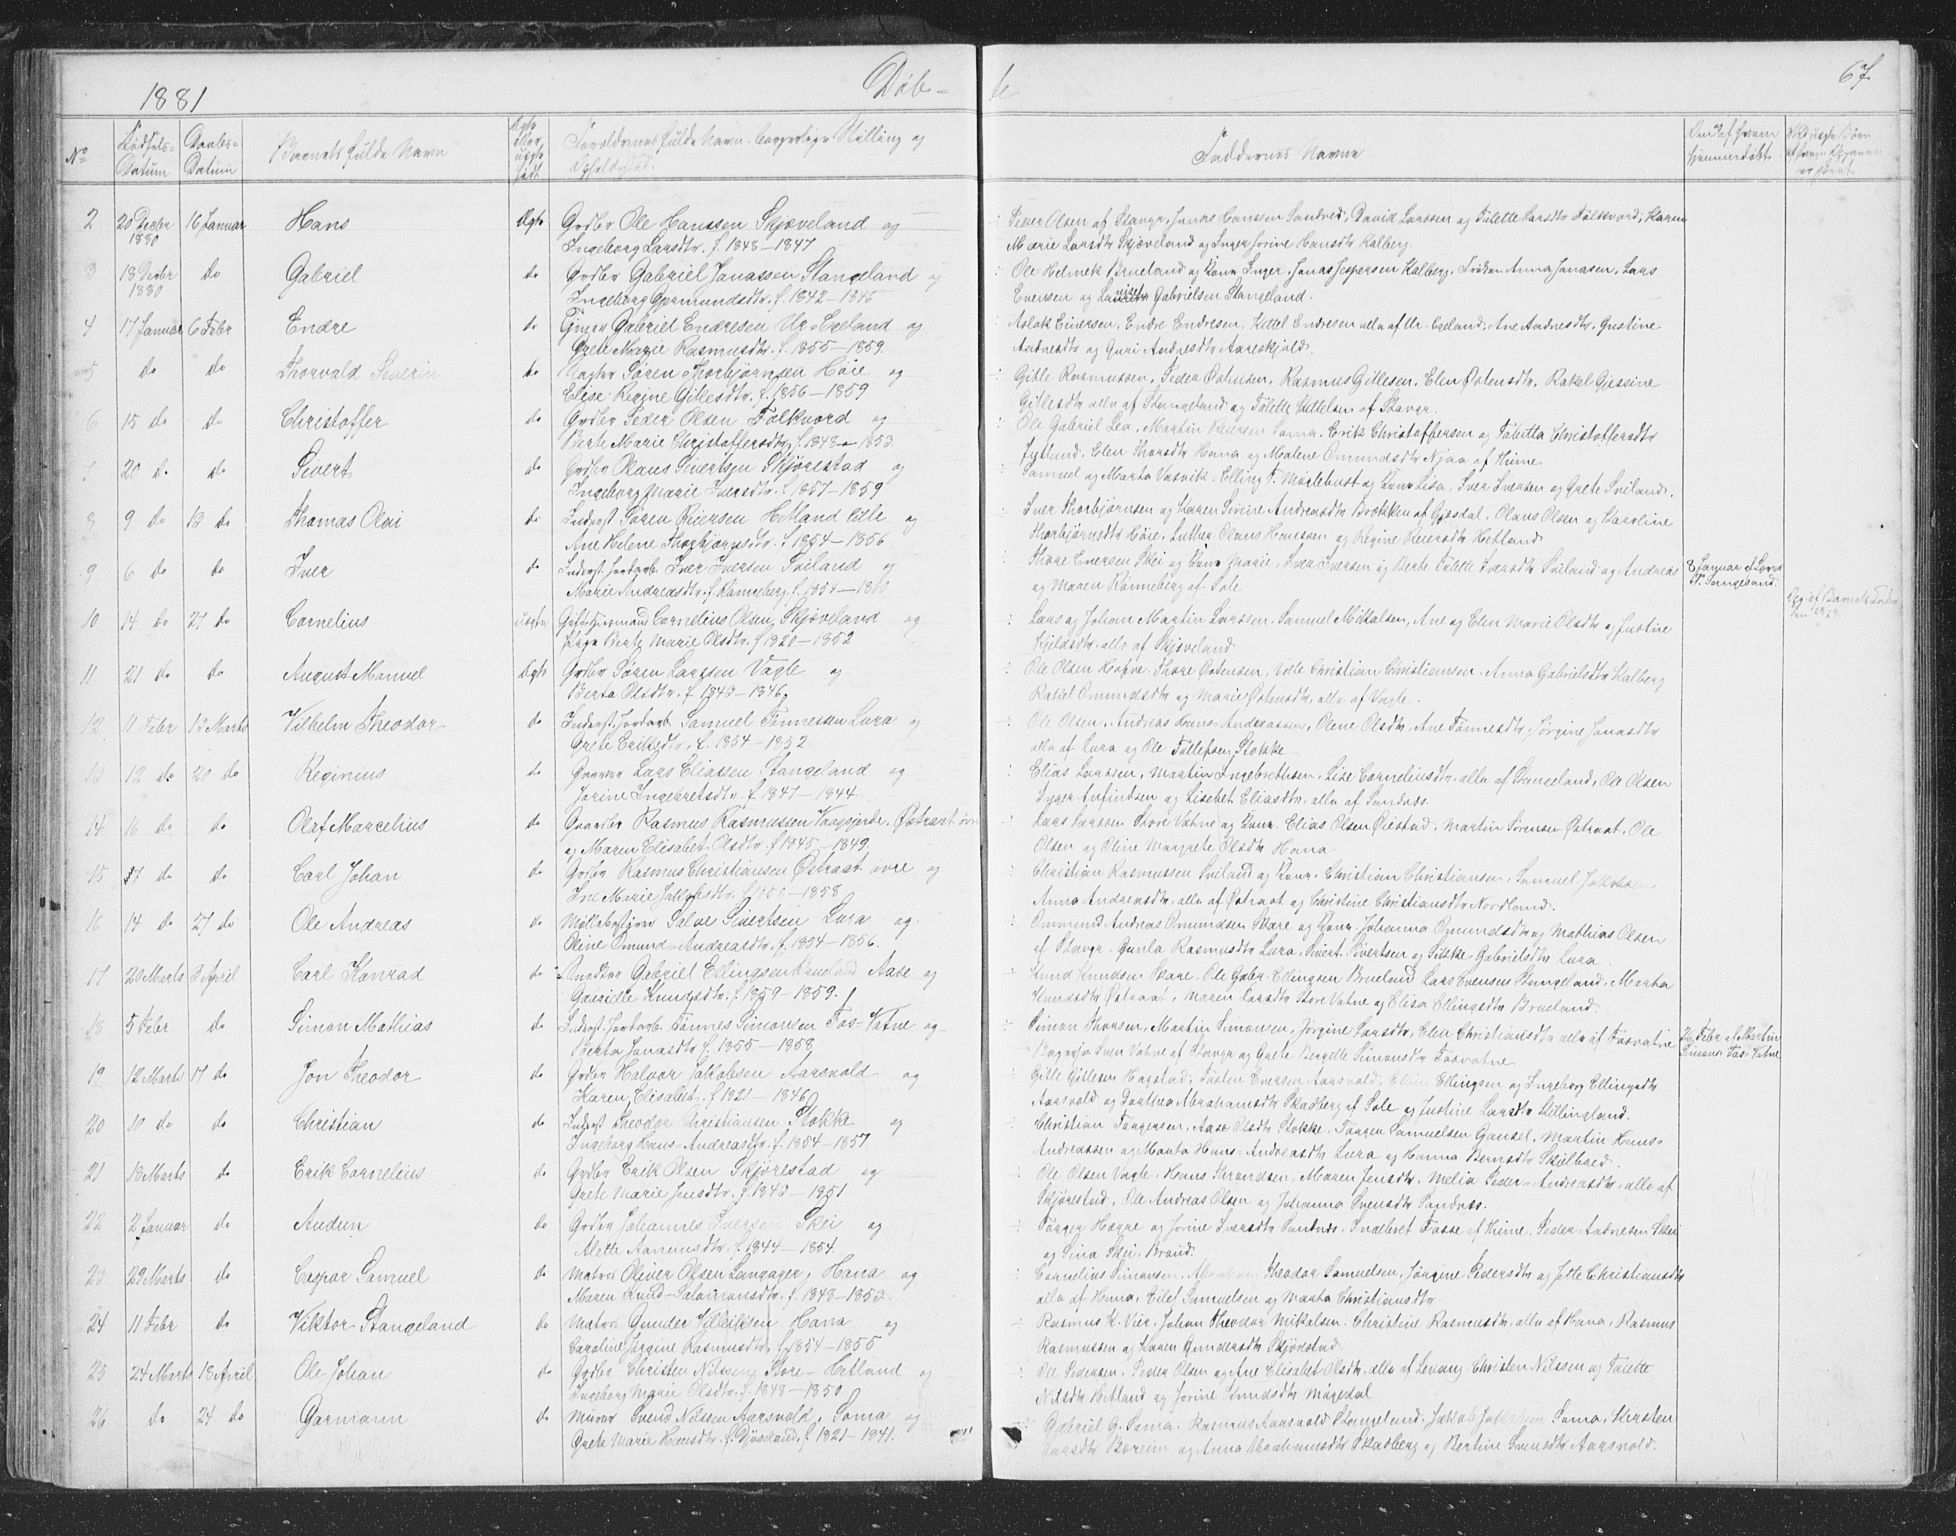 1881 Døb- te 67
No Fødsels- Datum Daabs- Datum Barnets fulde Navn Forældrenes fulde Navn, Borgerlige Stilling og Opholdssted. Faddernes Navne Om af hvem hjemmedøbt
2 20 Decbr 1880 16 Januar Hans Ægte Grdbr Ole Hanssen Skjæveland og
Ingeborg Larsdtr. f. 1848 – 1847
Peder Olsen af Stavgr. Jonas Hanssen Sandved, David Larssen og Tolette Larsdtr Folkvord, Karen
Marie Larsdtr Skjæveland og Inger Jorine Hansdtr Kalberg.
3 18 Decbr 1880 do Gabriel do Grdbr Gabriel Jonassen Stangeland og
Ingeborg Gurmundsdtr. f. 1842 – 1845
Ole Helmek Brueland og Kone Inger, Jonas Jespersen Kalberg, Frøken Anna Jonasen, Lars
Evensen og Gabrielsen Stangeland.
4 17 Januar 6 Febr Endre do Gabriel Endresen Ur-Egeland og
Grete Marie Rasmusdtr. f. 1855 – 1859.
Aslak Einersen, Endre Endresen, Kittel Endresen alle af Ur-Egeland, Ane Aadnesdtr, Gustine
Aadnesdtr og Guri Aadnesdtr Aareskjold.
5 do do Thorvald Severin do Søren Thorbjørnsen Høie og
Elise Regine Gillesdtr. f. 1856 – 1859
Gitle Rasmussen, Peder Østensen, Rasmus Gillesen, Elen Østensdtr, Rakel Gjessine
Gillesdtr alle af Stangeland og Tolette Kittelsen af Stavgr.
6 15 do do Christoffer do Grdbr Peder Olsen Folkvord og
Berte Marie Christoffersdtr f. 1848 – 1853
Ole Gabriel Lea, Martin Reiersen Soma, Erik Christoffersen og Tabitta Christoffersdtr
Jylland, Elen Thorsdtr Hana og Malene Omundsdtr Njaa af Thime.
7 20 do do Sivert do Grdbr Olaus Sivertsen Skjørestad og
Ingeborg Marie Iversdtr. f. 1857 – 1859
Samuel og Marta Vasvik, Elling T. og Kone Lisa, Iver Iversen og Grete Sviland.
8 9 do 13 do Thomas Olai do Inderst Søren Reiersen Hetland lille og
Ane Helene Thorbjørnsdtr. f. 1854 – 1856
Iver Thorbjørnsen og Karen Serine Andreasdtr Brekken af Gjesdal, Olaus Olsen og Karoline
Thorbjørnsdtr Høie, Luther Olaus Hanssen og Regine Reiersdtr Hetland
9 6 do do Iver do Inderst Jordarb. Iver Iversen Sviland og
Marie Andreasdtr. f. Rønneberg f. 1854 – 1860
Thore Evensen Skei og Kone Marie, Iver Iversen og Berte Tolette Iversdtr Sviland og Andreas
og Maren Rønneberg af Sole
8 Januar af Lars
T. Stangeland
10 14 do 27 do Cornelius uægte Gift Cornelius Olsen Skjæveland og
Pige Berte Marie Olsdtr f. 1820 – 1852
Lars og Johan Martin Larssen, Samuel Mikalsen, Ane og Elen Marie Olsdtr og Justine
Kjeldsdtr. alle af Skjæveland
11 21 do do August Manuel Ægte Grdbr Søren Larssen Vagle og
Berta Olsdtr. f. 1843 – 1846
Ole Olsen Hafre, Thore Østensen, Ville Christian Christiansen, Anna Gabrielsdtr Kalberg
Rakel Omundsdtr og Marie Østensdtr, alle af Vagle.
12 11 Febr 13 Marts Vilhelm Theodor do Inderst. Jordarb. Samuel Tønnesen Lura og
Grete Eriksdtr. f. 1854 – 1852
Ole Olsen, Andreas Hans-Andreassen, Olene Olsdtr, Ane Tønnesdtr, Jørgine Jonasdtr
alle af Lura og Ole Tollefsen Stokke
13 12 do 20 do Reginius do Lars Eliassen Stangeland og
Jorine Ingebretsdtr. f. 1847 – 1844.
Elias Larssen, Martin Ingebrethsen, Lise Corneliusdtr, alle af Stangeland, Ole Olsen
Inger Anfindsen og Lisebet Eliasdtr, alle af Sandnes.
14 16 do do Olaf Marcelius do Gaardbr Rasmus Rasmussen Østraat øvre
og Maren Elisabet Olsdtr. f. 1845 – 1849
Lars Larssen Store Vatne og Kone, Elias Olsen Øiestad, Martin Sørensen Østraat, Ole
Olsen og Oline Margrete Olsdtr Hana
15 17 do do Carl Johan do Grdbr Rasmus Christiansen Østraat øvre og
Ine Marie Jakobsdtr. f. – 1858
Christian Rasmussen Sviland og Kone, Christian Christiansen, Samuel Jakobsen
Anna Andreasdtr, alle af Østraat og Christine Christiansdtr Nordland.
16 14 do 27 do Ole Andreas do Møllebestyrer Salve Sivertsen Lura og
Oline Omund-Andreasdtr. f. 1854 – 1856
Ommund Andreas Omundsen Skare og Kone, Johanna Omundsdtr og Mathias Olsen
af Stavgr. Gunla Rasmusdtr Lura, Sivert Sivertsen og Silkke Gabrielsdtr Lura
17 20 Marts 3 April Carl Konrad do Gabriel Ellingsen Brueland Aase og
Gabrielle Knudsdtr. f. 1859 – 1859.
Knud Knudsen Skare, Ole Gabr. Ellingsen Brueland, Lars Evensen Stangeland, Marta
Knudsdtr Østraat, Maren Larsdtr Store Vatne og Elisa Ellingsdtr Brueland.
18 5 Febr do Simon Mathias do Inderst. Jordarb. Tønnes Simonsen Fos-Vatne og
Berta Jonasdtr f. 1855 – 1858
Simon Thorsen, Martin Simonsen, Jørgine Larsdtr, Elen Christiansdtr alle af Fosvatne
Sven Vatne af Stavgr og Grete Bergitte Simonsdtr Fosvatne
26 Febr af Martin
Simons. Fos-Vatne
19 12 Marts 17 do Jon Theodor do Grdbr Halvor Jakobsen Aarsvold og
Karen Elisabet f. 1821 – 1846
Gitle Gitlesen Hogstad, Torsten Eversen Aarsvold, Ellingsen og Ingeborg Ellingsdtr
Aarsvold og Dorthea Abrahamsdtr Skadberg af Sole og Justine Larsdtr Hellingland.
20 10 do do Christian do Inderst Theodor Christiansen Stokke og
Ingeborg Hans-Andreasdtr. f. 1854 – 1857
Christian Taagersen, Aase Olsdtr Stokke, Taagen Samuelsen Gausel, Martin Hans-
Andreassen og Marta Hans-Andreasdtr Lura og Hanna Berntsdtr Skeilbred.
21 13 Marts do Erik Cornelius do Grdbr Erik Olsen Skjørestad og
Grete Marie Jensdtr. f. 1843 – 1851
Ole Olsen Vagle, Hans Svendsen, Maren Jensdtr, Melia Peder-Andreasdtr, alle af
Skjørestad, Ole Andreas Olsen og Johanna Svensdtr Sandnæs.
22 2 Januar do Audun do Grdbr Johannes Iversen Skei og
Alette Aanensdtr. f. 1844 – 1854.
Taage Høgre og Jorine Iversdtr Sandnes, Ingebret Fosse af Thime, Peder Aadnesen Skei
og Sina Skei, Braud.
23 29 Marts do Caspar Samuel do Matros Oliver Olsen Langager, Hana og
Maren Knud-Salamonsdtr. f. 1848 – 1853.
Cornelius Simonsen, Theodor Samuelsen, Jørgine Pedersdtr og Jette Christiansdtr
alle af Hana, Eilef Samuelsen og Marta Christiansdtr
24 11 Febr do Viktor Stangeland do Matros Gunder Villeiksen Hana og
Caroline Jørgine Rasmusdtr. f. 1854 – 1855
Rasmus K. Vier, Johan Theodor Mikalsen, Christine Rasmusdtr, alle af Hana, Rasmus
Rasmussen og Karen Gundersdtr Skjørestad.
25 24 Marts 18 April Ole Johan do Grdbr Christen Nilssen Store-Hetland og
Ingeborg Marie Olsdtr. f. 1848 – 1850
Ole Pedersen, Peder Olsen og Ane Elisabet Olsdtr, alle af Levang, Christen Nilssen og Tolette
Nilsdtr Hetland og Jorine Svendsdtr Møgedal
26 do 24 do Garmann do Murer Svend Nilssen Aarsvold, Soma og
Grete Marie Hansdtr. f. f. 1821 – 1841.
Gabriel G. Soma, Rasmus Aarsvold Stangeland, Jakob Soma, Kirsten
Larsdtr og Anna Abrahamsdtr Skadberg og Bertine Svensdtr Aarsvold.